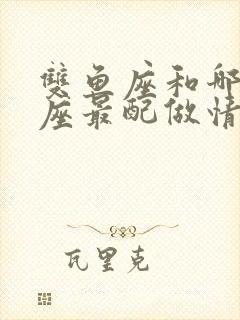 雙鱼座和哪
座最配做情
瓦里克